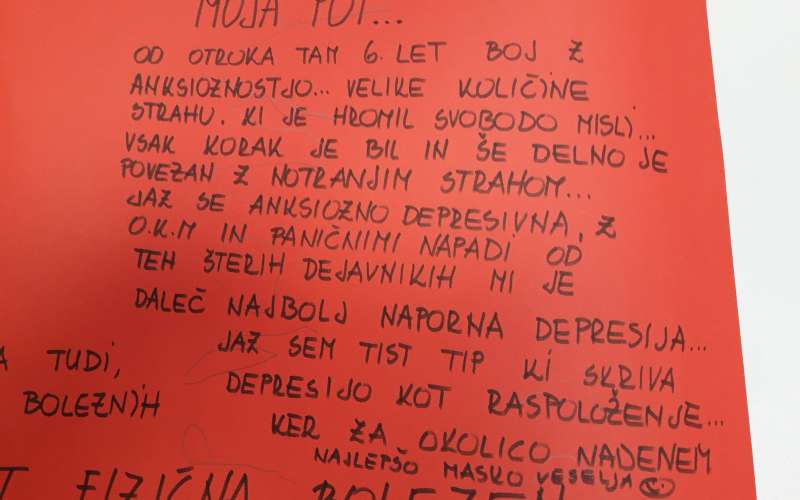 MOJA POT...
OD OTROKA TAM 6. LET BOJ Z
ANKSIOZNOSTJO... VELIKE KOLIČINE
STRAHU. KI JE HROMIL SVOBODO MISLI...
VSAK KORAK JE BIL IN ŠE DELNO JE
POVEZAN Z NOTRANJIM STRAHOM...
JAZ SE ANKSIOZNO DEPRESIVNA, Z
O.K.M IN PANIČNIMI NAPADI OD
TEH ŠTERIH DEJAVNIKIH MI JE
DALEČ NAJBOLJ NAPORNA DEPRESIJA...
A TUDI,
JAZ SEM TIST TIP KI SKRIVA
BOLEZNIH
DEPRESIJO KOT RASPOLOŽENJE...
KER ZA OKOLICO NADENEM
NAJLEPŠO MASKO VESELJA
FIZIČNA BOLEZEN